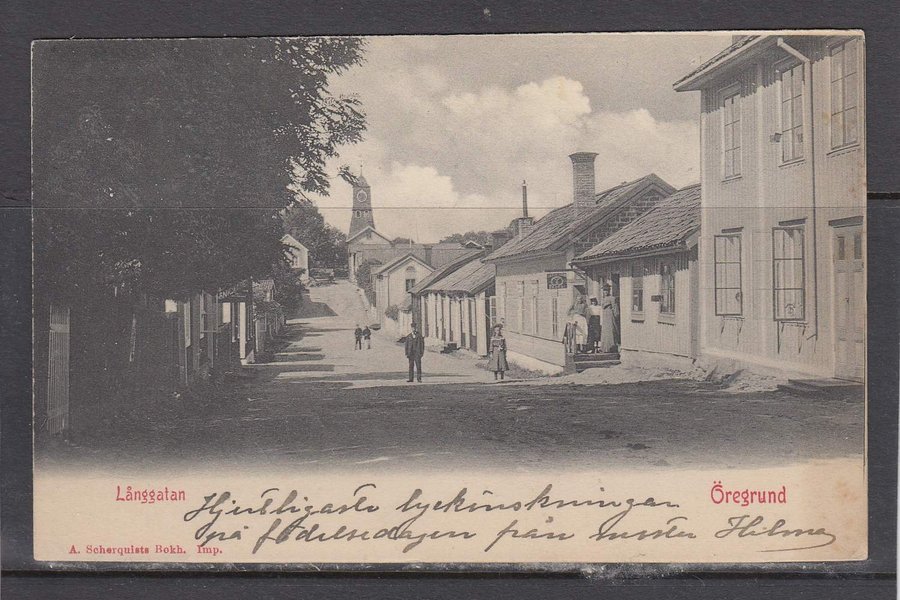 Långgatan
Öregrund
Hjertligaste lyckönskningar
på födelsedagen från
Hilma
A. Scherquists Bokh. Imp.